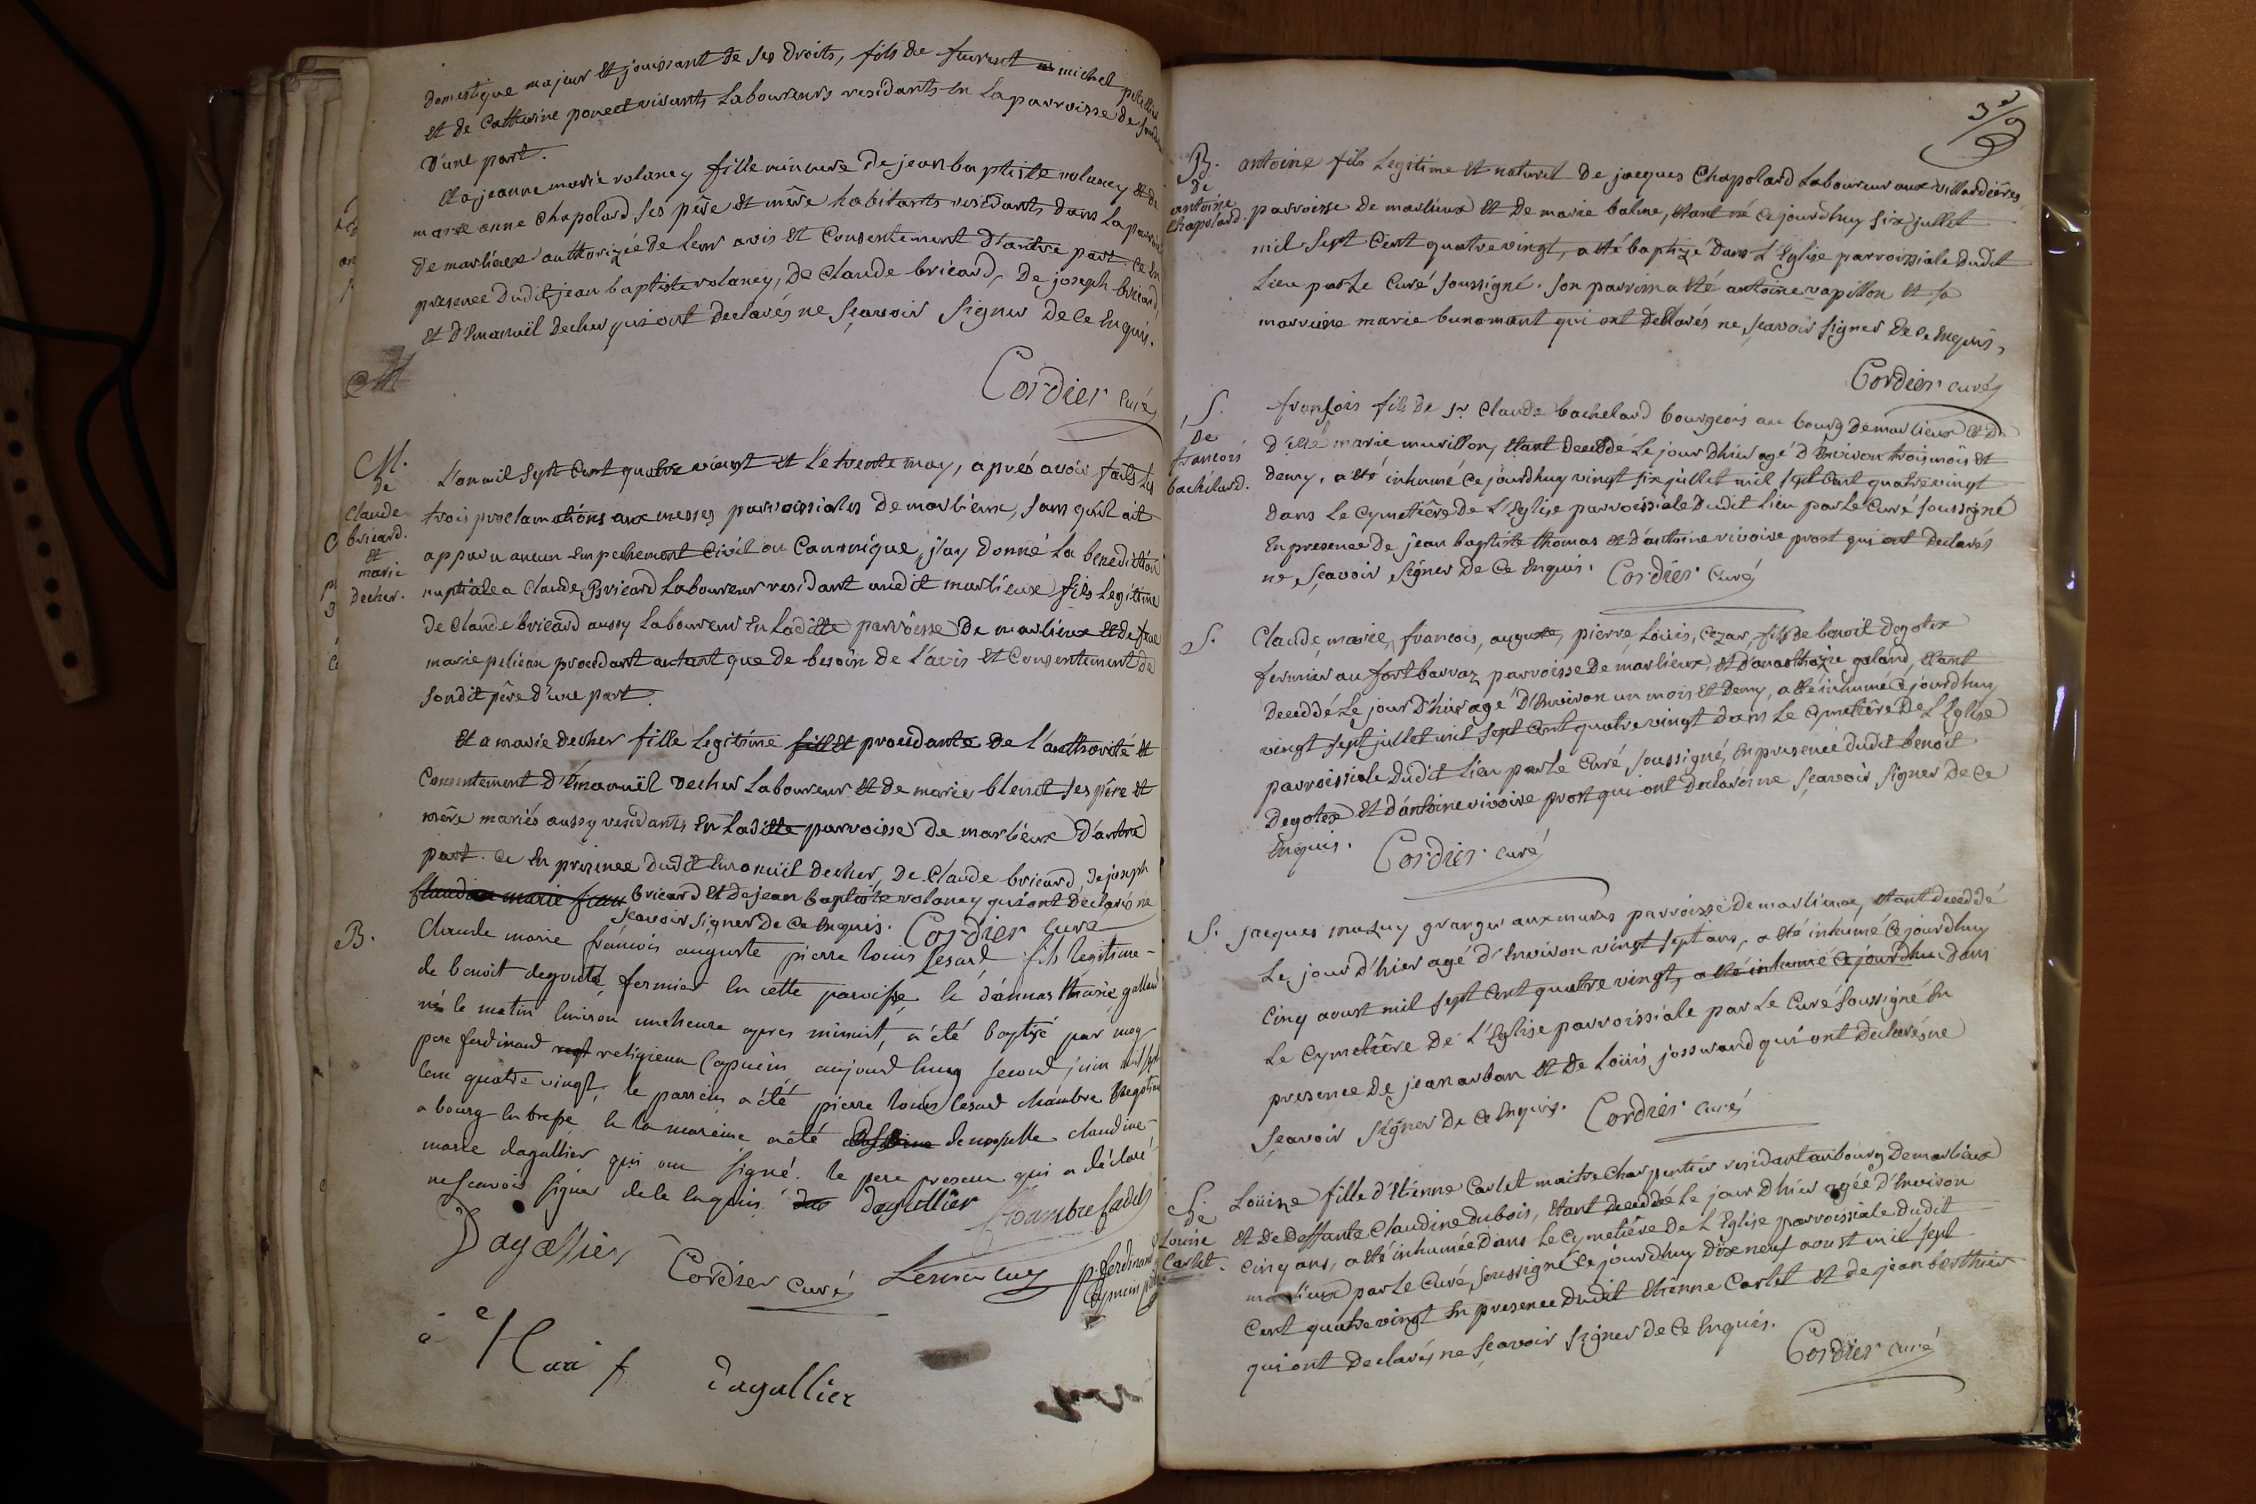 domestique majeur et jouissant de ses droits, fils de michel
et de Catherine vivants Laboureurs residants en La parroisse de
D'une part.
Et a jeanne marie volaney fille mineure De jean baptiste volaney et de
marie anne Chapolard ses père et mère habitants residants dans La
De marlieux authorizée de leur avis et Consentement D'autre part Ce en
presence Dudit jean baptiste volaney, De Claude bricard, De joseph bricard,
et D'Emanuël decher qui ont declarés ne sçavoir signer De Ce Enquis.
Cordier curé
M.
De
Claude
bricard.
et
marie
decher.
L'an mil sept Cent quatre vingt et Le trente may, après avoir faits les
trois proclamations aux messes parroissiales De marlieux, sans qu'il ait
apparu aucun Empechement Civil ou Canonique, j'ay donné La benediction
nuptiale a Claude Bricard Laboureur residant audit marlieux fils Legitime
De Claude bricard aussy Laboureur En Laditte parroisse De marlieux et de
marie pelican procedant autant que de besoin De L'avis et Consentement de
sondit père d'une part.
Et a marie Decher fille Legitime procedante De L'authorité et
Consentement D'Emanuël decher Laboureur et de marie ses père et
mère mariés aussy residants En Laditte parroisse De marlieux D'autre
part. Ce En presence dudit Emanuël decher, De Claude bricard, de joseph
bricard et De jean baptiste volaney qui ont declarés ne
sçavoir signer De Ce Enquis. Cordier Curé
B.
Claude marie francois auguste pierre louis Cesard fils legitime
de benoit fermier en cette paroisse et d'annasthasie galland
né le matin environ une heure apres minuit, a été baptisé par moy
pere ferdinand religieux Capucin aujourd'huy second juin mil sept
cent quatre vingt, le parrein a été pierre louis Cesard chambre
a bourg en bresse et la mareine a été demoiselle claudine
marie dagallier qui ont signé. le pere present qui a déclaré
ne scavoir signer de ce enquis dagallier
Dagallier
Cordier curé
p. ferdinand
dagallier
39
B.
de
antoine
Chapolard.
antoine fils Legitime et naturel De jacques Chapolard Laboureur aux villardières
parroisse De marlieux et De marie balme, etant né Cejourdhuy six juillet
mil sept Cent quatre vingt, a eté baptizé Dans L'Eglise parroissiale dudit
Lieu par Le Curé soussigné. son parrein a eté antoine vapillon et sa
marreine marie qui ont declarés ne sçavoir signer De Ce Enquis.
Cordier curé
S.
De
francois
bachelard.
françois fils De sr Claude bachelard bourgeois au bourg De marlieux et De
d'elle marie murillon, etant decedé Le jour dhier agé D'Environ trois mois et
demy, a eté inhumé Ce jourdhuy vingt six juillet mil sept Cent quatre vingt
dans Le Cymetière De L'Eglise parroissiale Dudit Lieu par Le Curé soussigné
En presence De jean baptiste thomas et D'antoine vivoire prost qui ont declarés
ne sçavoir signer De Ce Enquis. Cordier Curé
S.
Claude, marie, francois, auguste, pierre, Loüis, Cezar, fils De benoit Degotex
fermier au fort barraz parroisse De marlieux, et D'anasthazie galand, etant
decedé Le jour D'hier agé D'Environ un mois et Demy, a eté inhumé Ce jourdhuy
vingt sept juillet mil sept Cent quatre vingt dans Le Cymetière De L'Eglise
parroissiale Dudit Lieu par Le Curé soussigné, En presence Dudit benoit
Degotex et D'antoine vivoire prost qui ont declarés ne sçavoir signer De Ce
Enquis. Cordier Curé
S.
jacques granger aux mures parroisse De marlieux, etant decedé
Le jour D'hier agé D'Environ vingt sept ans, a eté inhumé Ce jourdhuy
Cinq aoust mil sept Cent quatre vingt, a eté inhumé Ce jourdhui Dans
Le Cymetière De L'Eglise parroissiale par Le Curé soussigné En
presence De jean arban et De Loüis josserand qui ont declarés ne
sçavoir signer De Ce Enquis. Cordier Curé
S.
De
Louise
Carlet.
Loüise fille d'Etienne Carlet maitre Charpentier residant au bourg De marlieux
et De Deffunte Claudine Dubois, etant decedée Le jour D'hier agée D'Environ
Cinq ans, a eté inhumée Dans Le Cymetière De L'Eglise parroissiale dudit
marlieux par Le Curé soussigné Ce jourdhuy Dix neuf aoust mil sept
Cent quatre vingt En presence Dudit Etienne Carlet et de jean berthier
qui ont Declarés ne sçavoir signer De Ce Enquis.
Cordier curé